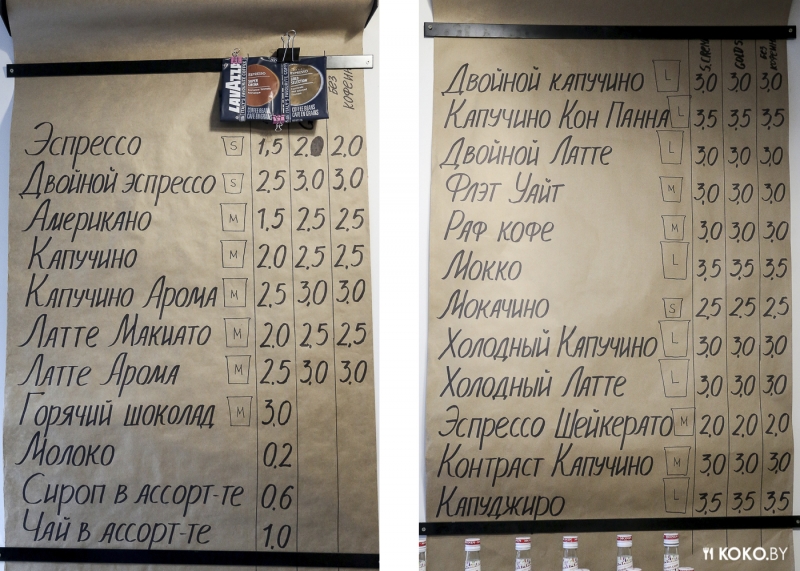 LAVAZZA
БЕЗ КОФЕИНА
Эспрессо S 1,5 2.0 2.0
Двойной эспрессо S 2,5 3,0 3,0
Американо M 1,5 2,5 2,5
Капучино M 2,0 2,5 2,5
Капучино Арома M 2,5 3,0 3,0
Латте Макиато M 2,0 2,5 2,5
Латте Арома M 2,5 3,0 3,0
Горячий шоколад M 3,0
Молоко 0,2
Сироп в ассорт-те 0,6
Чай в ассорт-те 1,0
Двойной капучино L 3,0 3,0 3,0
Капучино Кон Панна L 3,5 3,5 3,5
Двойной Латте L 3,0 3,0 3,0
Флэт Уайт M 3,0 3,0 3,0
Раф кофе M 3,0 3,0 3,0
Мокко L 3,5 3,5 3,5
Мокачино S 2,5 2,5 2,5
Холодный Капучино L 3,0 3,0 3,0
Холодный Латте L 3,0 3,0 3,0
Эспрессо Шейкерато M 2,0 2,0 2,0
Контраст Капучино M 3,0 3,0 3,0
Капуджиро L 3,5 3,5 3,5
KOKO.BY